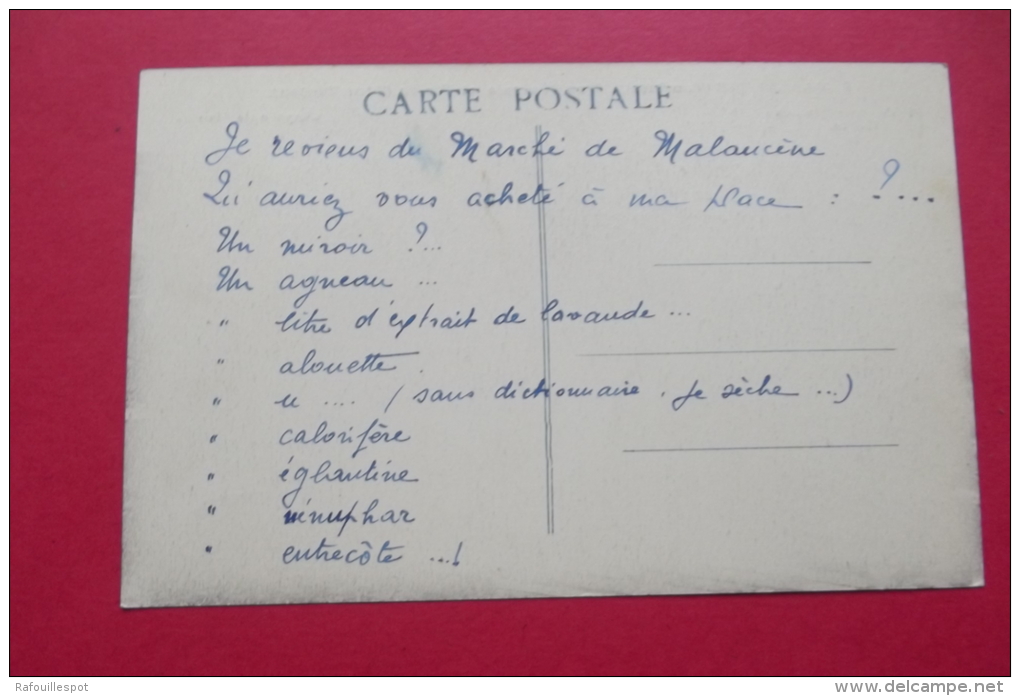 CARTE POSTALE
Je reviens du Marché de Malaucène
Qu'auriez vous acheté à ma place : ?...
Un miroir ?...
Un agneau ...
" litre d'extrait de lavande ...
" alouette .
" u .... (sans dictionnaire. Je sèche ...)
" calorifère
" églantine
" nénuphar
" entrecôte ...!
Rafouillespot
www.delcampe.net